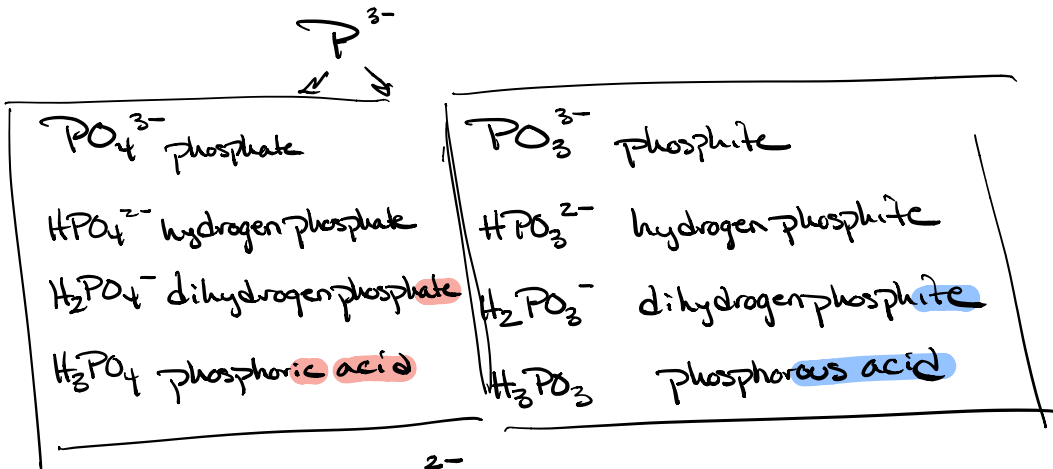 P³⁻
PO₄³⁻ phosphate
HPO₄²⁻ hydrogen phosphate
H₂PO₄⁻ dihydrogen phosphate
H₃PO₄ phosphoric acid
PO₃³⁻ phosphite
HPO₃²⁻ hydrogen phosphite
H₂PO₃⁻ dihydrogen phosphite
H₃PO₃ phosphorous acid
2-